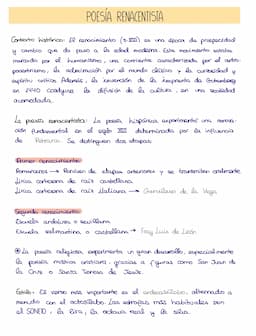 POESÍA RENACENTISTA
Contexto histórico: El renacimiento (s. XVI) es una época de prosperidad
y cambio que da paso a la edad moderna. Este movimiento estaba
marcado por el humanismo, una corriente caracterizada por el antro-
pocentrismo, la admiración por el mundo clásico y la curiosidad y
espíritu crítico. Además, la invención de la imprenta de Gutenberg
en 1440 coadyuva la difusión de la cultura, en una sociedad
acomodada.
La poesía renacentista: La poesía hispánica experimentó una renova-
ción fundamental en el siglo XVI determinada por la influencia
de Petrarca. Se distinguen dos etapas:
Primer renacimiento:
Romances → Perviven de etapas anteriores y se transmiten oralmente.
Lírica cortesana de raíz castellana.
Lírica cortesana de raíz italiana → Garcilaso de la Vega
Segundo renacimiento:
Escuela andaluza o sevillana
Escuela salmantina o castellana → Fray Luis de León
La poesía religiosa experimenta un gran desarrollo, especialmente
la poesía mística cristiana, gracias a figuras como San Juan de
la Cruz o Santa Teresa de Jesús.
Estilo: El verso más importante es el endecasílabo, alternado a
menudo con el octosílabo. Las estrofas más habituales son
el SONETO, la lira, la octava real y la silva.